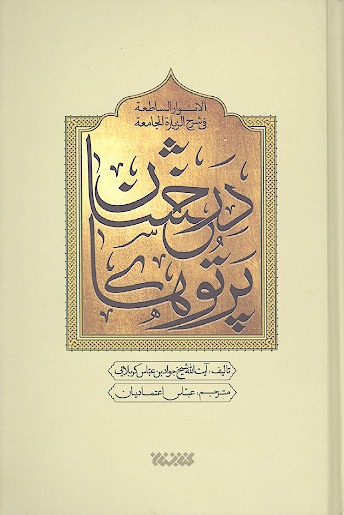 الانوار الساطعة
فی شرح الزیارة الجامعة
پرتوهای
درخشان
تالیف: آیت الله شیخ جواد بن عباس کربلایی
مترجم: عباس اعتمادیان